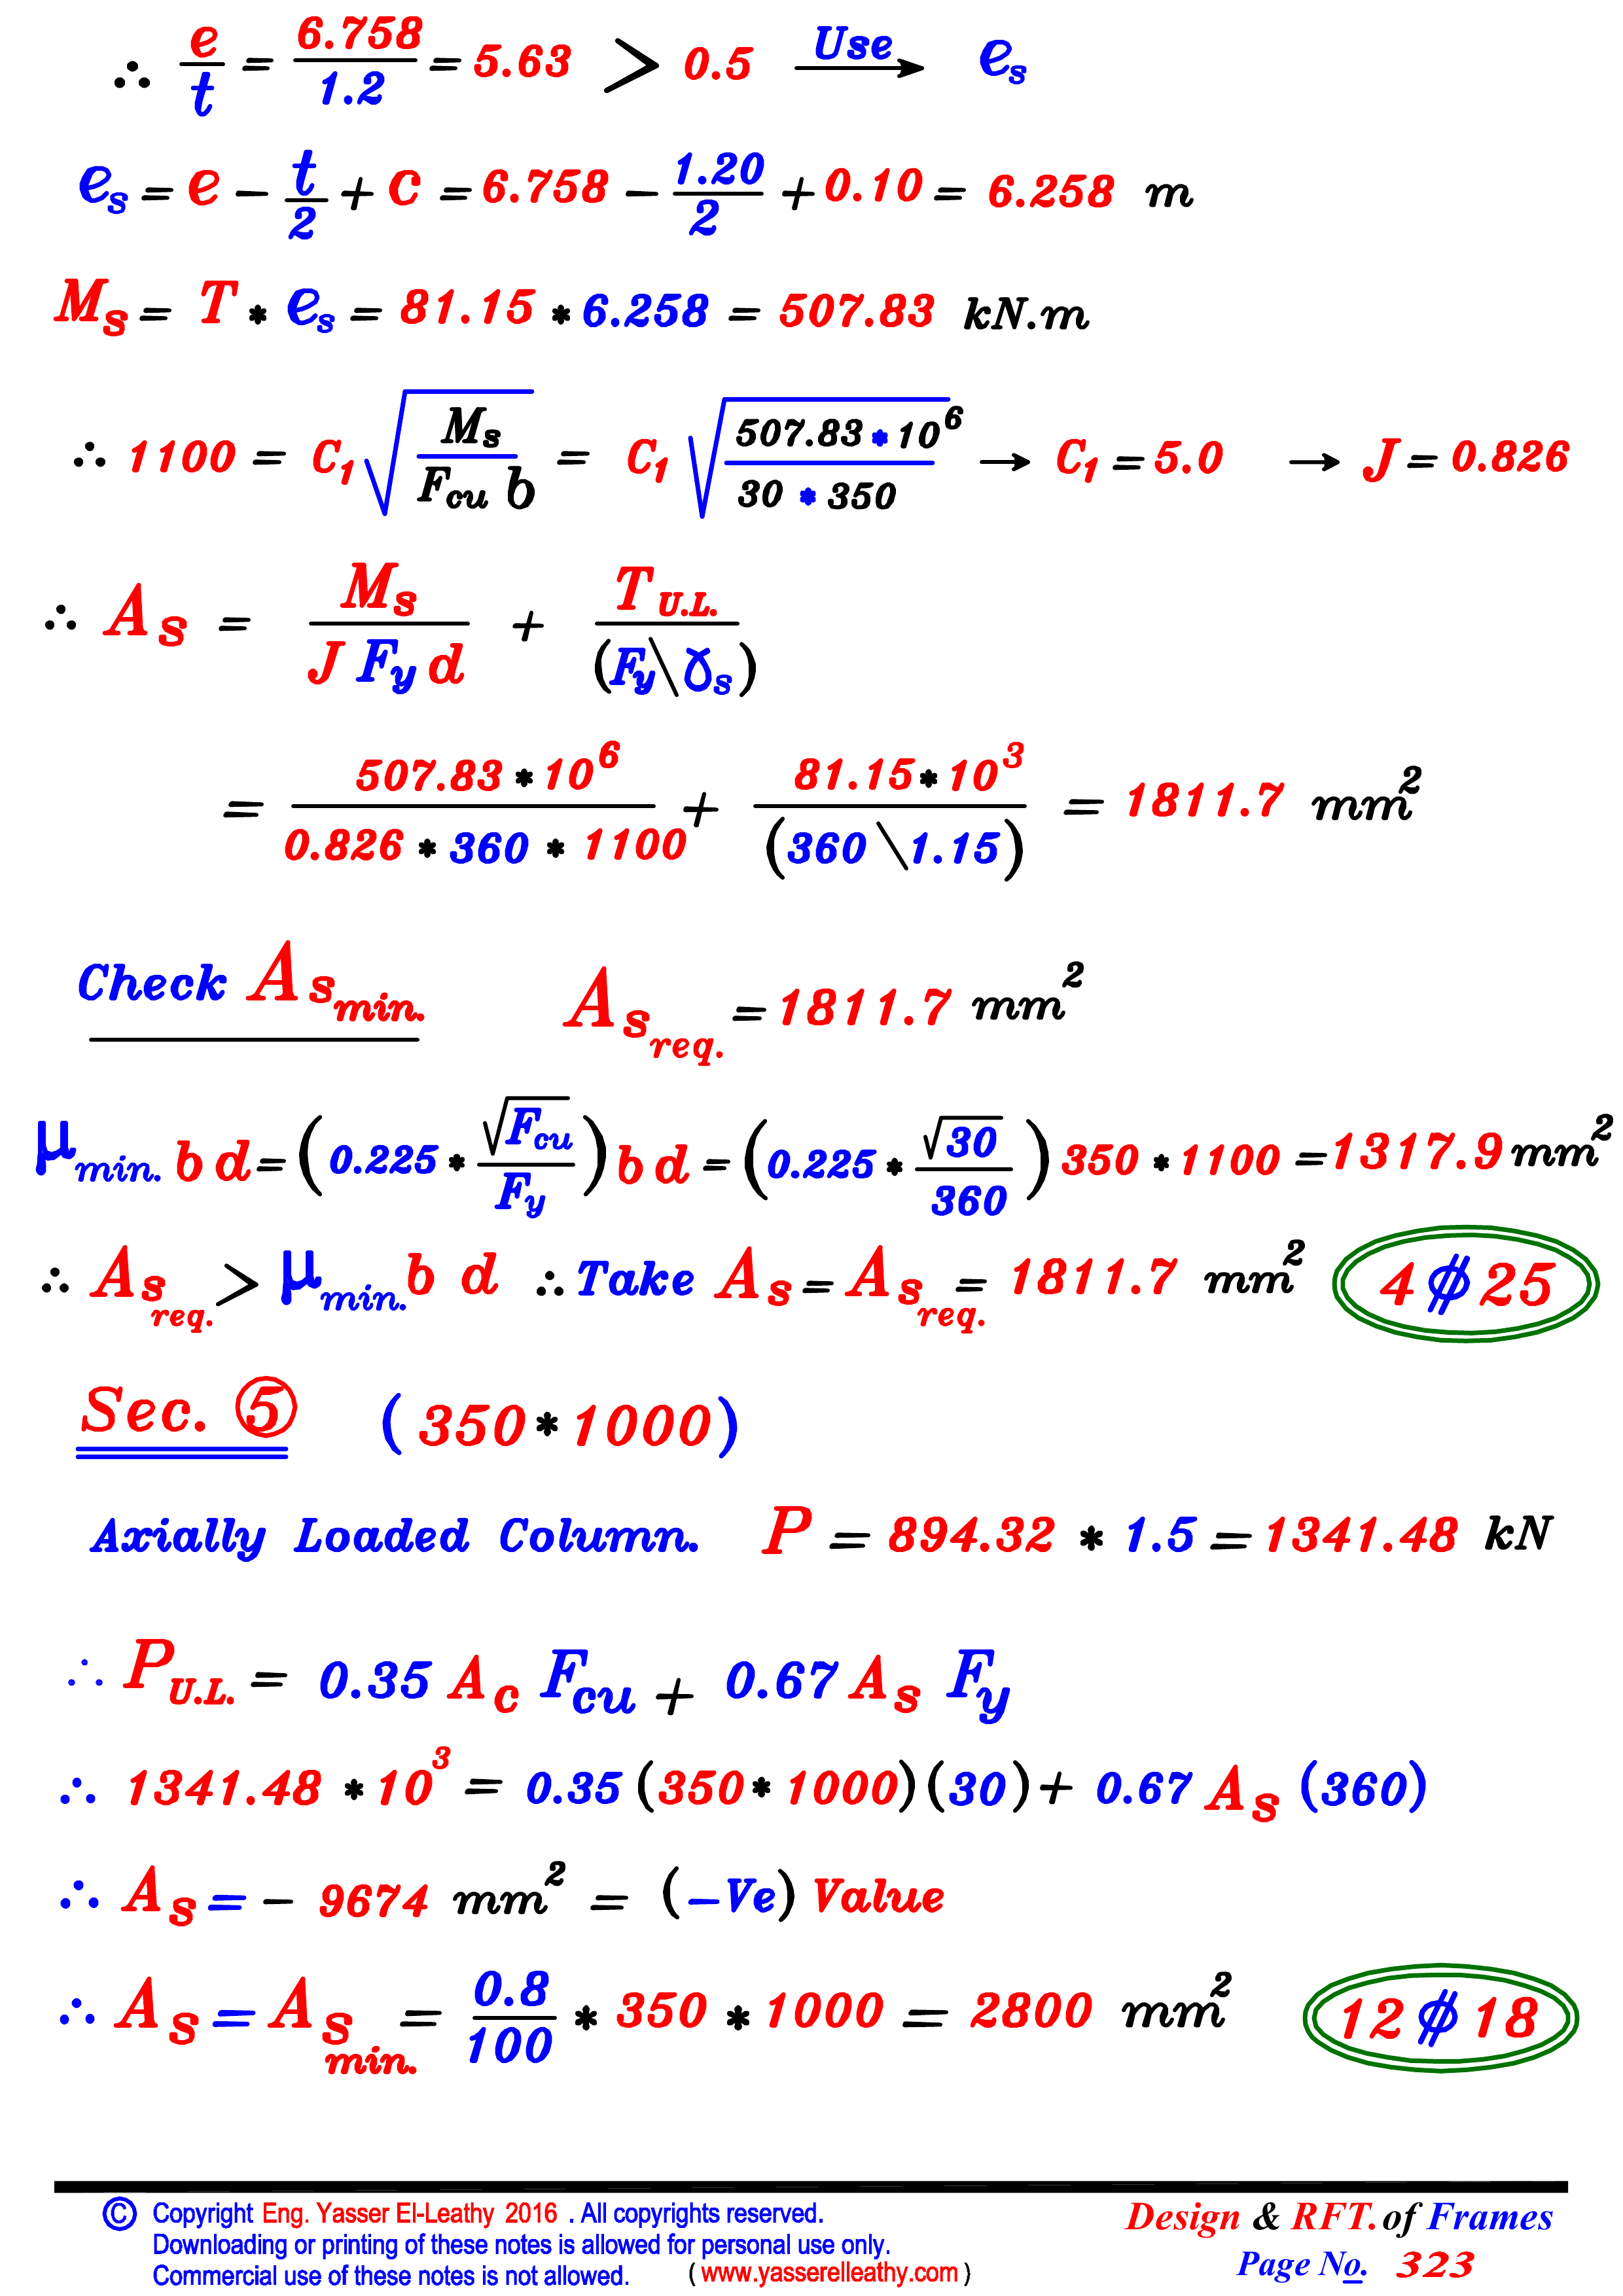 ∴ e/t = 6.758/1.2 = 5.63 > 0.5 Use→ eₛ
eₛ = e − t/2 + c = 6.758 − 1.20/2 + 0.10 = 6.258 m
Mₛ = T * eₛ = 81.15 * 6.258 = 507.83 kN.m
∴ 1100 = C₁ √(Mₛ / F_cu b) = C₁ √(507.83 * 10⁶ / 30 * 350) → C₁ = 5.0 → J = 0.826
∴ Aₛ = Mₛ / (J F_y d) + T_U.L. / (F_y \ ɣₛ)
= 507.83 * 10⁶ / (0.826 * 360 * 1100) + 81.15 * 10³ / (360 \ 1.15) = 1811.7 mm²
Check Aₛ min. Aₛ req. = 1811.7 mm²
μ min. b d = (0.225 * √F_cu / F_y) b d = (0.225 * √30 / 360) 350 * 1100 = 1317.9 mm²
∴ Aₛ req. > μ min. b d ∴ Take Aₛ = Aₛ req. = 1811.7 mm² 4 ⌀ 25
Sec. ⑤ (350 * 1000)
Axially Loaded Column. P = 894.32 * 1.5 = 1341.48 kN
∴ P_U.L. = 0.35 A_c F_cu + 0.67 Aₛ F_y
∴ 1341.48 * 10³ = 0.35 (350 * 1000) (30) + 0.67 Aₛ (360)
∴ Aₛ = − 9674 mm² = (−Ve) Value
∴ Aₛ = Aₛ min. = 0.8/100 * 350 * 1000 = 2800 mm² 12 ⌀ 18
© Copyright Eng. Yasser El-Leathy 2016 . All copyrights reserved.
Downloading or printing of these notes is allowed for personal use only.
Commercial use of these notes is not allowed. ( www.yasserelleathy.com )
Design & RFT. of Frames
Page No. 323